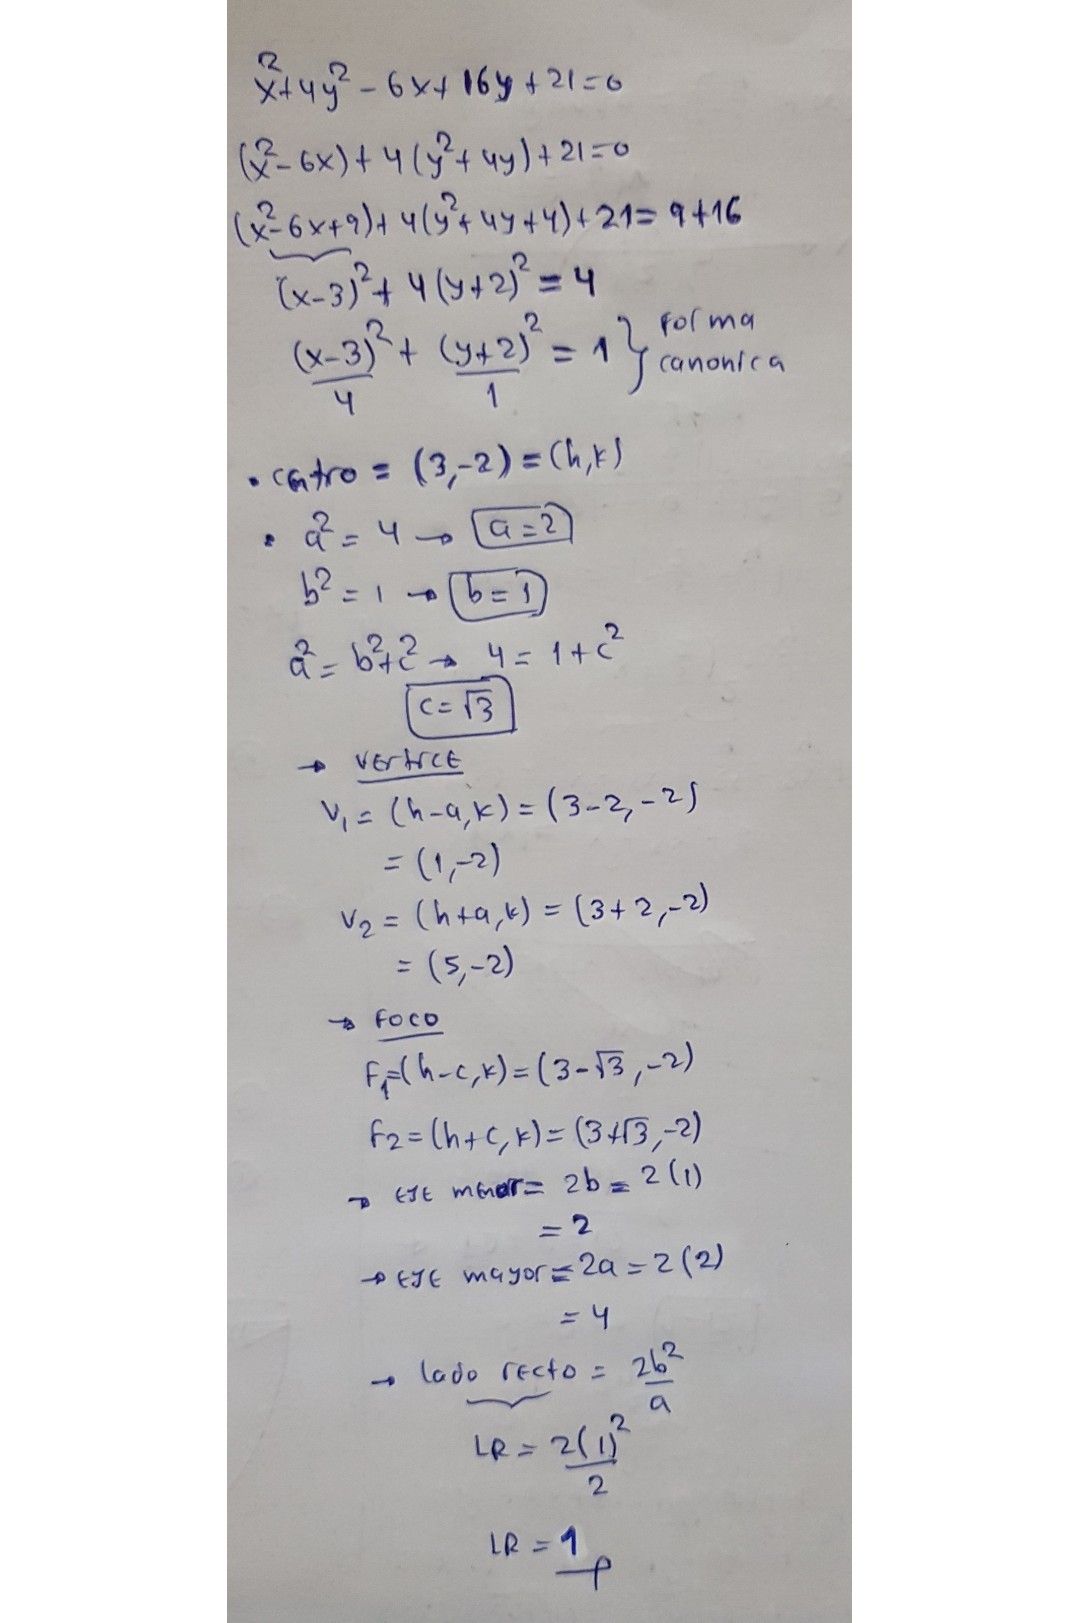 x²+4y²-6x+16y+21=0
(x²-6x)+4(y²+4y)+21=0
(x²-6x+9)+4(y²+4y+4)+21=9+16
(x-3)²+4(y+2)²=4
(x-3)²/4+(y+2)²/1=1} forma canonica
• centro=(3,-2)=(h,k)
• a²=4→a=2
b²=1→b=1
a²=b²+c²→4=1+c²
c=√3
→ vertice
V₁=(h-a,k)=(3-2,-2)
=(1,-2)
V₂=(h+a,k)=(3+2,-2)
=(5,-2)
→ foco
F₁=(h-c,k)=(3-√3,-2)
F₂=(h+c,k)=(3+√3,-2)
→ eje menor=2b=2(1)
=2
→ eje mayor=2a=2(2)
=4
→ lado recto=2b²/a
LR=2(1)²/2
LR=1